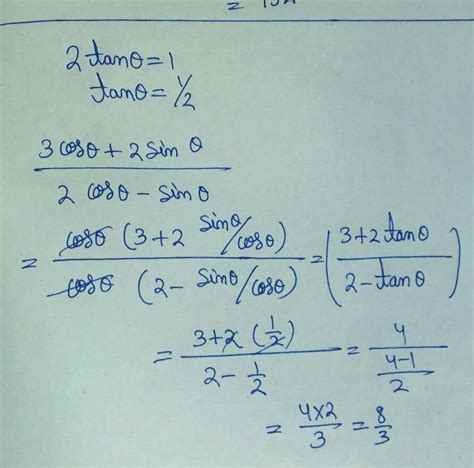 2 tanθ = 1
tanθ = 1/2
3 cosθ + 2 sin θ
2 cosθ - sinθ
= cosθ (3+2 sinθ/cosθ) / cosθ (2- sinθ/cosθ) = (3+2 tanθ / 2-tanθ)
= 3+2 (1/2) / 2 - 1/2 = 4 / (4-1 / 2)
= 4×2 / 3 = 8/3